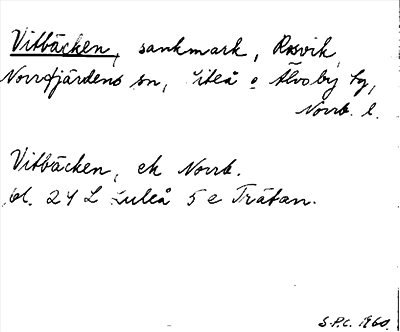 Vitbäcken, sankmark, Rosvik,
Norrfjärdens sn, Piteå o Älvsby tg,
Norrb. l.
Vitbäcken, ek Norrb.
bl. 24 L Luleå 5 e Trätan.
S.P.C. 1960.